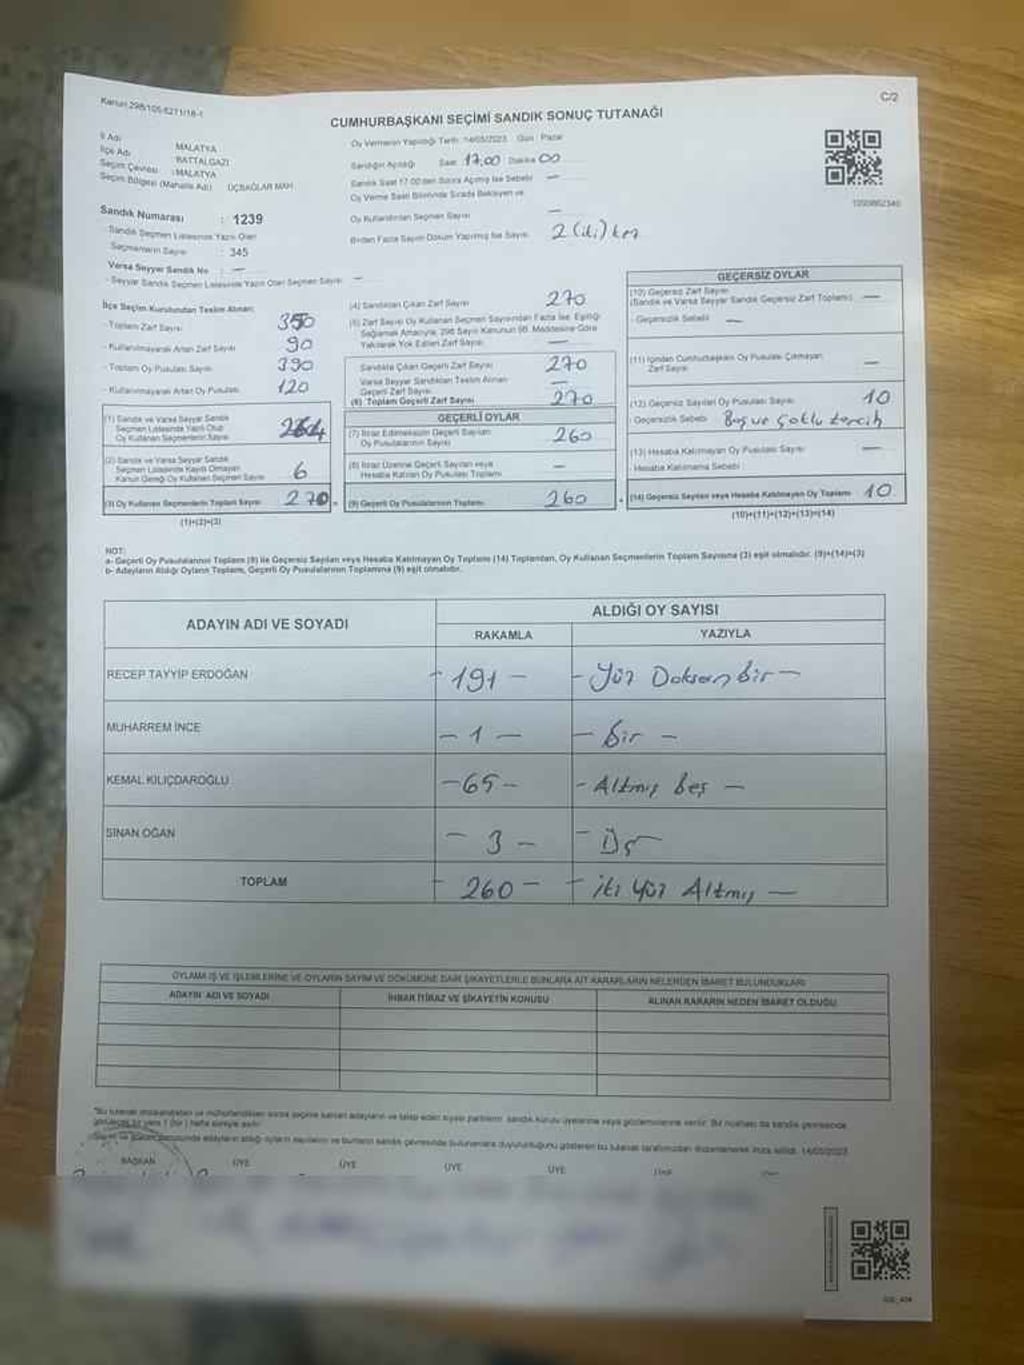 Kanun:298/105-6271/18-1
C/2
CUMHURBAŞKANI SEÇİMİ SANDIK SONUÇ TUTANAĞI
İl Adı : MALATYA
İlçe Adı : BATTALGAZİ
Seçim Çevresi : MALATYA
Seçim Bölgesi (Mahalle Adı) : ÜÇBAĞLAR MAH.
Oy Vermenin Yapıldığı Tarih : 14/05/2023 Gün : Pazar
Sandığın Açıldığı Saat 17:00 Dakika 00
Sandık Saat 17:00'den Sonra Açılmış İse Sebebi —
Oy Verme Saati Bitiminde Sırada Bekleyen ve
Oy Kullandırılan Seçmen Sayısı —
Birden Fazla Sayım Döküm Yapılmış İse Sayısı 2 (iki) kez
Sandık Numarası : 1239
- Sandık Seçmen Listesinde Yazılı Olan
Seçmenlerin Sayısı : 345
Varsa Seyyar Sandık No : —
- Seyyar Sandık Seçmen Listesinde Yazılı Olan Seçmen Sayısı : —
İlçe Seçim Kurulundan Teslim Alınan;
- Toplam Zarf Sayısı
- Kullanılmayarak Artan Zarf Sayısı 90
- Toplam Oy Pusulası Sayısı 390
- Kullanılmayarak Artan Oy Pusulası 120
(1) Sandık ve Varsa Seyyar Sandık
Seçmen Listesinde Yazılı Olup
Oy Kullanan Seçmenlerin Sayısı 264
(2) Sandık ve Varsa Seyyar Sandık
Seçmen Listesinde Kayıtlı Olmayan
Kanun Gereği Oy Kullanan Seçmen Sayısı 6
(3) Oy Kullanan Seçmenlerin Toplam Sayısı 270
(1)+(2)=(3)
(4) Sandıktan Çıkan Zarf Sayısı 270
(5) Zarf Sayısı Oy Kullanan Seçmen Sayısından Fazla İse, Eşitliği
Sağlamak Amacıyla, 298 Sayılı Kanunun 98. Maddesine Göre
Yakılarak Yok Edilen Zarf Sayısı —
Sandıkta Çıkan Geçerli Zarf Sayısı 270
Varsa Seyyar Sandıktan Teslim Alınan
Geçerli Zarf Sayısı —
(6) Toplam Geçerli Zarf Sayısı 270
GEÇERLİ OYLAR
(7) İtiraz Edilmeksizin Geçerli Sayılan
Oy Pusulalarının Sayısı 260
(8) İtiraz Üzerine Geçerli Sayılan veya
Hesaba Katılan Oy Pusulası Toplamı —
(9) Geçerli Oy Pusulalarının Toplamı 260
GEÇERSİZ OYLAR
(10) Geçersiz Zarf Sayısı
(Sandık ve Varsa Seyyar Sandık Geçersiz Zarf Toplamı) —
- Geçersizlik Sebebi : —
(11) İçinden Cumhurbaşkanı Oy Pusulası Çıkmayan
Zarf Sayısı —
(12) Geçersiz Sayılan Oy Pusulası Sayısı 10
- Geçersizlik Sebebi : Boş ve Çoklu tercih
(13) Hesaba Katılmayan Oy Pusulası Sayısı —
- Hesaba Katılmama Sebebi :
(14) Geçersiz Sayılan veya Hesaba Katılmayan Oy Toplamı 10
(10)+(11)+(12)+(13)=(14)
NOT:
a- Geçerli Oy Pusulalarının Toplamı (9) ile Geçersiz Sayılan veya Hesaba Katılmayan Oy Toplamı (14) Toplamları, Oy Kullanan Seçmenlerin Toplam Sayısına (3) eşit olmalıdır. (9)+(14)=(3)
b- Adayların Aldığı Oyların Toplamı, Geçerli Oy Pusulalarının Toplamına (9) eşit olmalıdır.
ADAYIN ADI VE SOYADI
ALDIĞI OY SAYISI
RAKAMLA YAZIYLA
RECEP TAYYİP ERDOĞAN - 191 - - Yüz Doksan bir -
MUHARREM İNCE - 1 - - Bir -
KEMAL KILIÇDAROĞLU - 65 - - Altmış beş -
SİNAN OĞAN - 3 - - Üç -
TOPLAM - 260 - - İki Yüz Altmış -
OYLAMA İŞ VE İŞLEMLERİNE VE OYLARIN SAYIM VE DÖKÜMÜNE DAİR ŞİKAYETLERLE BUNLARA AİT KARARLARIN NELERDEN İBARET BULUNDUKLARI
ADAYIN ADI VE SOYADI İHBAR İTİRAZ VE ŞİKAYETİN KONUSU ALINAN KARARIN NEDEN İBARET OLDUĞU
BAŞKAN ÜYE ÜYE ÜYE ÜYE